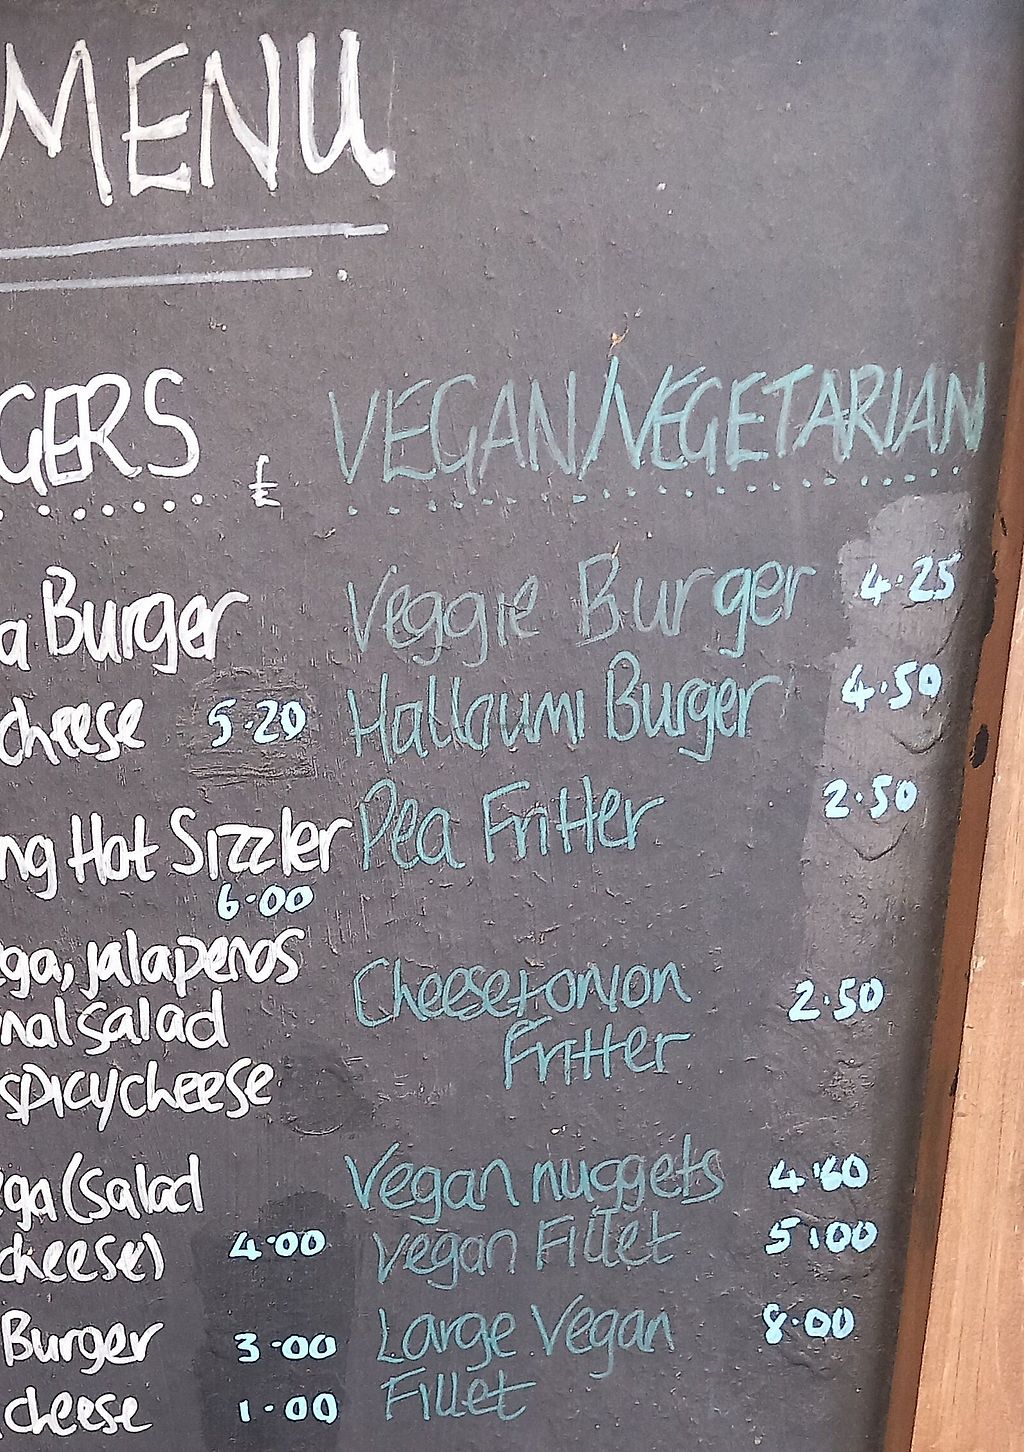 MENU
GERS £
a Burger
cheese 5.20
ng Hot Sizzler
6.00
ga, jalapenos
nal salad
spicy cheese
ga (salad
cheese) 4.00
Burger 3.00
cheese 1.00
VEGAN/VEGETARIAN
Veggie Burger 4.25
Halloumi Burger 4.50
Pea Fritter 2.50
Cheese+onion 2.50
Fritter
Vegan nuggets 4.60
Vegan Fillet 5.00
Large Vegan 8.00
Fillet